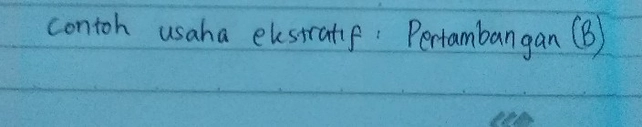 Contoh usaha ekstratif : Pertambangan (B)